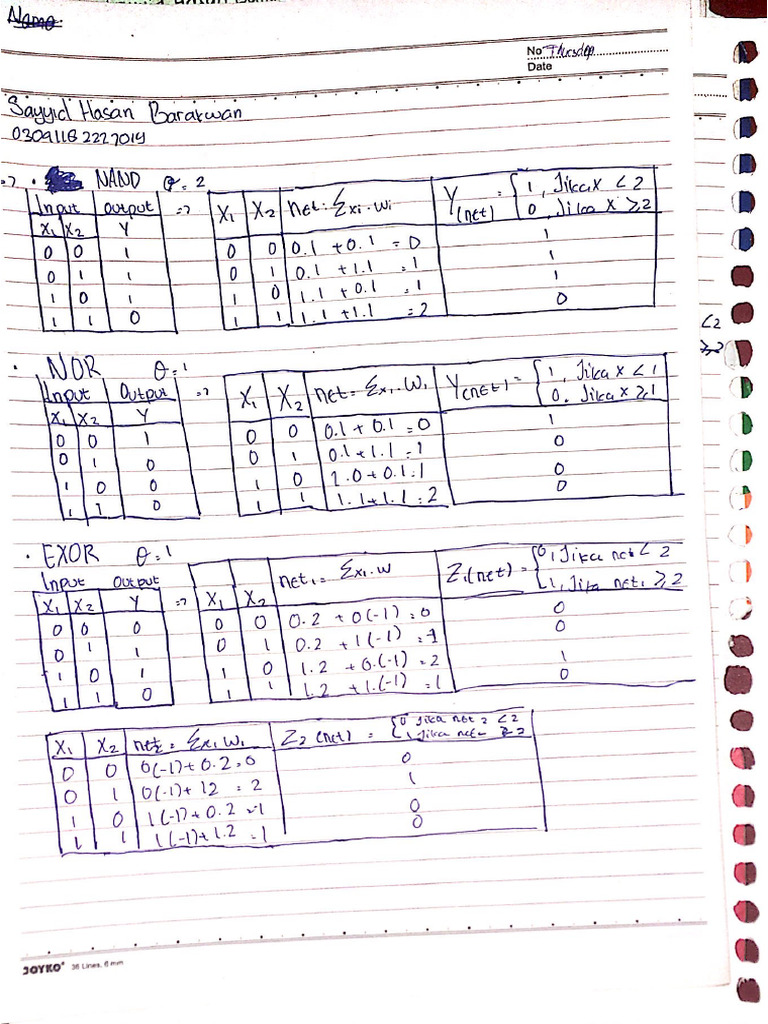 Nama
No Thursday
Date
Sayyid Hasan Barakwan
03091182227019
=> · NAND θ = 2
Input Output =>
X1 X2 Y
0 0 1
0 1 1
1 0 1
1 1 0
X1 X2 net: Σxi.wi Y(net) = { 1, Jika x < 2
0, Jika x ≥ 2
0 0 0.1 + 0.1 = 0 1
0 1 0.1 + 1.1 = 1 1
1 0 1.1 + 0.1 = 1 1
1 1 1.1 + 1.1 = 2 0
< 2
≥ 2
· NOR θ = 1
Input Output =>
X1 X2 Y
0 0 1
0 1 0
1 0 0
1 1 0
X1 X2 net = Σxi.wi Y(net) = { 1, Jika x < 1
0. Jika x ≥ 1
0 0 0.1 + 0.1 = 0 1
0 1 0.1 + 1.1 = 1 0
1 0 1.0 + 0.1 = 1 0
1 1 1.1 + 1.1 = 2 0
· EXOR θ = 1
Input Output =>
X1 X2 Y
0 0 0
0 1 1
1 0 1
1 1 0
X1 X2 net1 = Σxi.w Z1(net) = { 0, Jika net < 2
1, Jika net1 ≥ 2
0 0 0.2 + 0(-1) = 0 0
0 1 0.2 + 1(-1) = -1 0
1 0 1.2 + 0.(-1) = 2 1
1 1 1.2 + 1.(-1) = 1 0
X1 X2 net2 = Σxi wi Z2(net) = { 0 Jika net2 < 2
1, Jika net2 ≥ 2
0 0 0(-1) + 0.2 = 0 0
0 1 0(-1) + 12 = 2 1
1 0 1(-1) + 0.2 = -1 0
1 1 1(-1) + 1.2 = 1 0
JOYKO 36 Lines, 6 mm